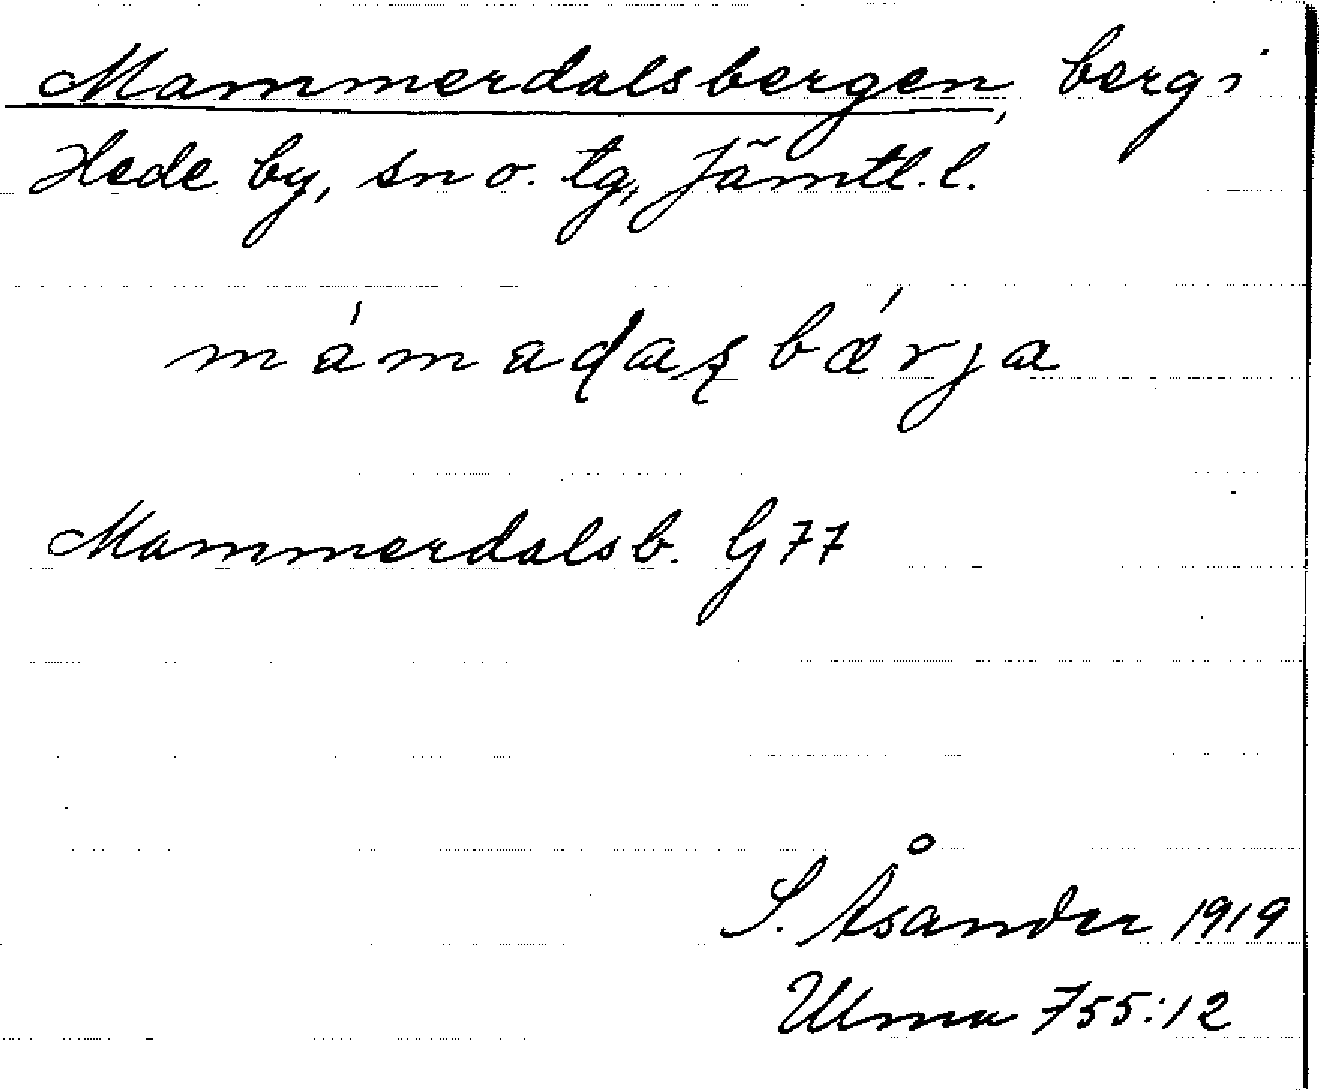 Mammerdalsbergen, berg i
Hede by, sn o. tg, Jämtl. l.
mámadaʂbǽrja
Mammerdalsb. G 77
S. Åsander 1919
Ulma 755:12